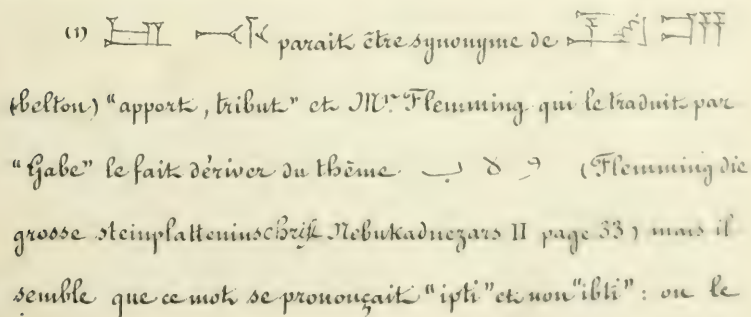 (1) parait être synonyme de
(belton) "apport, tribut" et Mr. Flemming qui le traduit par
"Gabe" le fait dériver du thème (Flemming die
grosse steinplatteninschrift Nebukadnezars II page 33) mais il
semble que ce mot se prononçait "ipti" et non "ibti": on le